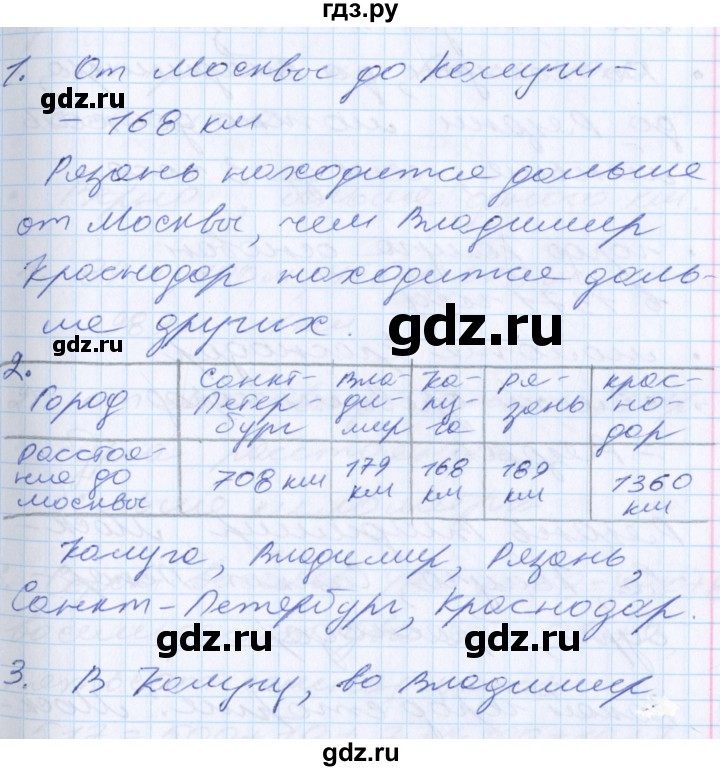 гдз.ру
1. От Москвы до Калуги -
- 168 км
gdz.ru
Рязань находится дальше
от Москвы, чем Владимир
Краснодар находится даль-
ше других.
gdz.ru
gdz.ru
2.
Город | Санкт-Петер-бург | Вла-ди-мир | Ка-лу-га | Ря-зань | Крас-но-дар
Расстоя-ние до Москвы | 708 км | 179 км | 168 км | 189 км | 1360 км
Калуга, Владимир, Рязань,
Санкт-Петербург, Краснодар.
gdz.ru
gdz.ru
3. В Калугу, во Владимир
gdz.ru